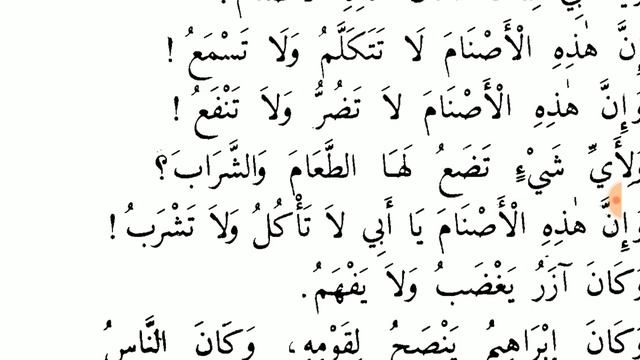 إِنَّ هٰذِهِ الْأَصْنَامَ لَا تَتَكَلَّمُ وَلَا تَسْمَعُ !
وَإِنَّ هٰذِهِ الْأَصْنَامَ لاَ تَضُرُّ وَلاَ تَنْفَعُ !
وَلِأَيِّ شَيْءٍ تَضَعُ لَهَا الطَّعَامَ وَالشَّرَابَ؟
وَإِنَّ هٰذِهِ الْأَصْنَامَ يَا أَبِي لاَ تَأْكُلُ وَلاَ تَشْرَبُ !
وَكَانَ آزَرُ يَغْضَبُ وَلاَ يَفْهَمُ.
وَكَانَ إِبْرَاهِيمُ يَنْصَحُ لِقَوْمِهِ، وَكَانَ النَّاسُ